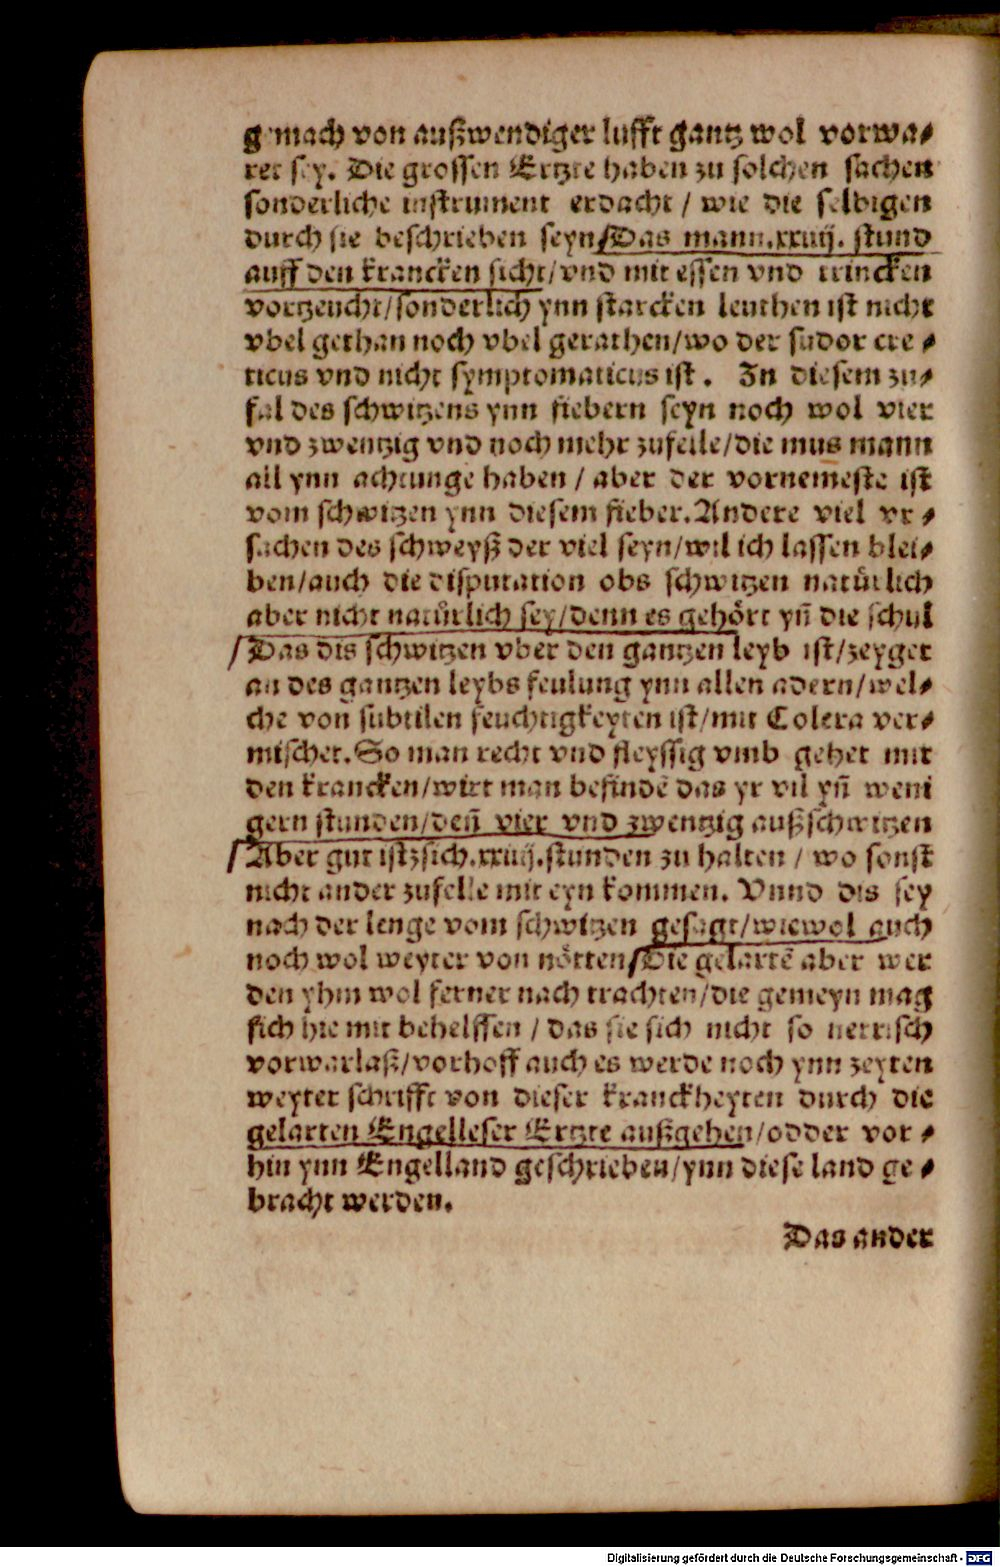 gemach von außwendiger lufft gantz wol vorwa⸗
ret sey. Die grossen Ertzte haben zu solchen sachen
sonderliche instrument erdacht / wie die selbigen
durch sie beschrieben seyn/Das mann.xxiiij. stund
auff den krancken sicht/vnd mit essen vnd trincken
vortzeucht/sonderlich ynn starcken leuthen ist nicht
vbel gethan noch vbel gerathen/wo der sudor cre⸗
ticus vnd nicht symptomaticus ist. In diesem zu⸗
fal des schwitzens ynn fiebern seyn noch wol vier
vnd zwentzig vnd noch mehr zufelle/die mus mann
all ynn achtunge haben / aber der vornemeste ist
vom schwitzen ynn diesem fieber. Andere viel vr⸗
sachen des schweyß der viel seyn/wil ich lassen blei⸗
ben/auch die disputation obs schwitzen natuͤrlich
aber nicht natuͤrlich sey/denn es gehoͤrt yñ die schul
/Das dis schwitzen vber den gantzen leyb ist/zeyget
an des gantzen leybs feulung ynn allen adern/wel⸗
che von subtilen feuchtigkeyten ist/mit Colera ver⸗
mischet. So man recht vnd fleyssig vmb gehet mit
den krancken/wirt man befindē das yr vil yñ weni
gern stunden/deñ vier vnd zwentzig außschwitzen
/Aber gut istzsich.xxiiij.stunden zu halten / wo sonst
nicht ander zufelle mit eyn kommen. Vnnd dis sey
nach der lenge vom schwitzen gesagt/wiewol auch
noch wol weyter von noͤtten/Die gelartē aber wer
den yhm wol ferner nach trachten/die gemeyn mag
sich hie mit behelffen / das sie sich nicht so nerrisch
vorwarlaß/vorhoff auch es werde noch ynn zeyten
weyter schrifft von dieser kranckheyten durch die
gelarten Engelleser Ertzte außgehen/odder vor⸗
hin ynn Engelland geschrieben/ynn diese land ge⸗
bracht werden.
Das ander
Digitalisierung gefördert durch die Deutsche Forschungsgemeinschaft - DFG